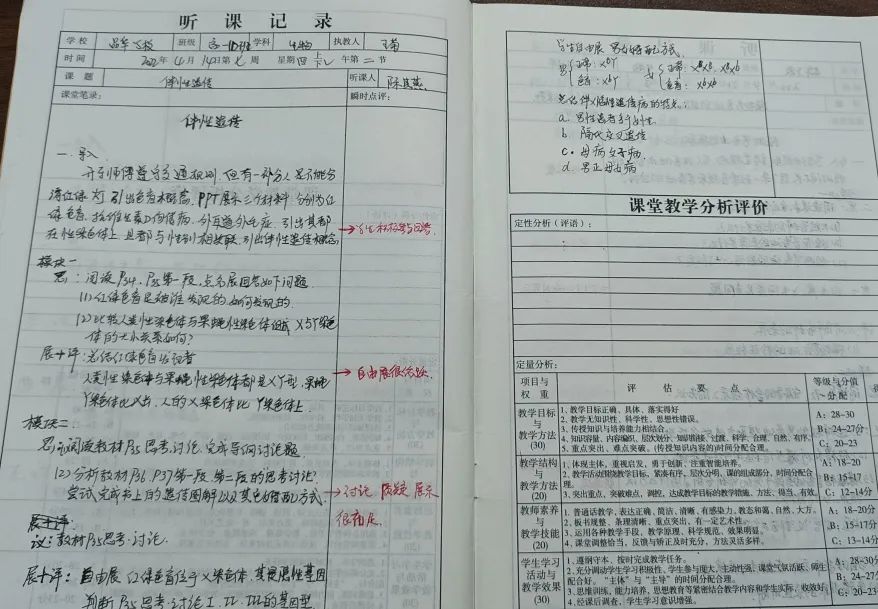 听课记录
学校 班级 高一 学科 生物 执教人
时间 2022年4月14日第七周 星期四上午第二节
课题 伴性遗传 听课人
课堂笔录： 瞬时点评：
伴性遗传
一.导入
开车师傅遵守交通规则，但有一部分人是不能分
清红绿灯 引出色盲和醛 PPT展示三个材料 分别为红
绿色盲、抗维生素D佝偻病、外耳道多毛症，引出其都
在性染色体上 且都与性别相关联，引出伴性遗传概念
→学生积极参与回答.
模块一
思：阅读P34、P35第一段，点名展回答如下问题
(1)红绿色盲是被谁发现的，如何发现的.
(2)比较人类性染色体与果蝇性染色体组成 X与Y染色
体的大小关系如何?
展+评：总结红绿色盲发现者
人类性染色体与果蝇性染色体都是XY型，果蝇
Y染色体比X大，人的X染色体比Y染色体大.
→自由展很活跃.
模块二：
思：(1)阅读教材P35思考讨论 完成导问讨论题
(2)分析教材P36、P37第一段、第二段的思考讨论.
尝试完成书上的遗传图解以及其它婚配方式.
→讨论 质疑 展示
很充足.
展+评
议：教材P35思考·讨论.
展+评：自由展 红绿色盲位于X染色体，其是隐性基因
判断P35思考·讨论I、II、III的基因型
学生自由展 男女婚配方式.
男{正常：XBY 女{正常：XBXB、XBXb
色盲：XbY 色盲：XbXb
总结伴X隐性遗传病的特点：
a. 男性患者多于女性.
b. 隔代交叉遗传
c. 母病女子病.
d. 男正母女病
课堂教学分析评价
定性分析（评语）：
定量分析：
项目与权重 评估要点 等级与分值分配
教学目标与教学方法(30)
1. 教学目标正确、具体、落实得好
2. 教学无知识性、科学性、思想性错误。
3. 传授知识与培养能力相结合。
4. 知识容量、内容编织、层次划分、知识衔接、过渡、科学、合理、自然、有序。
5. 重点突出、难点突破。(传授知识内容的)时间分配合理。
A：28-30
B：24-27分
C：20-23
教学结构与教学方法(20)
1. 体现主体，重视启发，勇于创新、注重智能培养。
2. 教学活动围绕教学目标，紧凑有序，层次分明，课的组成部分，时间分配合理。
3. 突出重点，突破难点，调控，达成教学目标的教学措施、方法、得当、有效
A：18-20
B：15-17
C：12-14分
教师素养与教学技能(20)
1. 普通话教学，表达正确、简洁、清晰、有感染力，教态和蔼、自然、大方。
2. 板书规整、条理清晰，重点突出、有一定艺术性。
3. 运用各种教学手段，教学原理、科学规范、效果明显。
4. 课堂调整恰当，反馈与矫正及时充分，方法灵活多样。
A：18-20分
B：15-17分
C：13-14分
学生学习活动与教学效果(30)
1. 遵纲守本、按时完成教学任务。
2. 充分调动学生学习积极性，学生参与度大、主动性强，课堂气氛活跃、师生
配合好。“主体”与“主导”的时间分配合理。
3. 思维训练、能力培养，思想教育等紧密结合教学内容和学生实际，收效好
4. 经课后调查，学生学习意识增强。
A：28-30分
B：24-27分
C：20-23